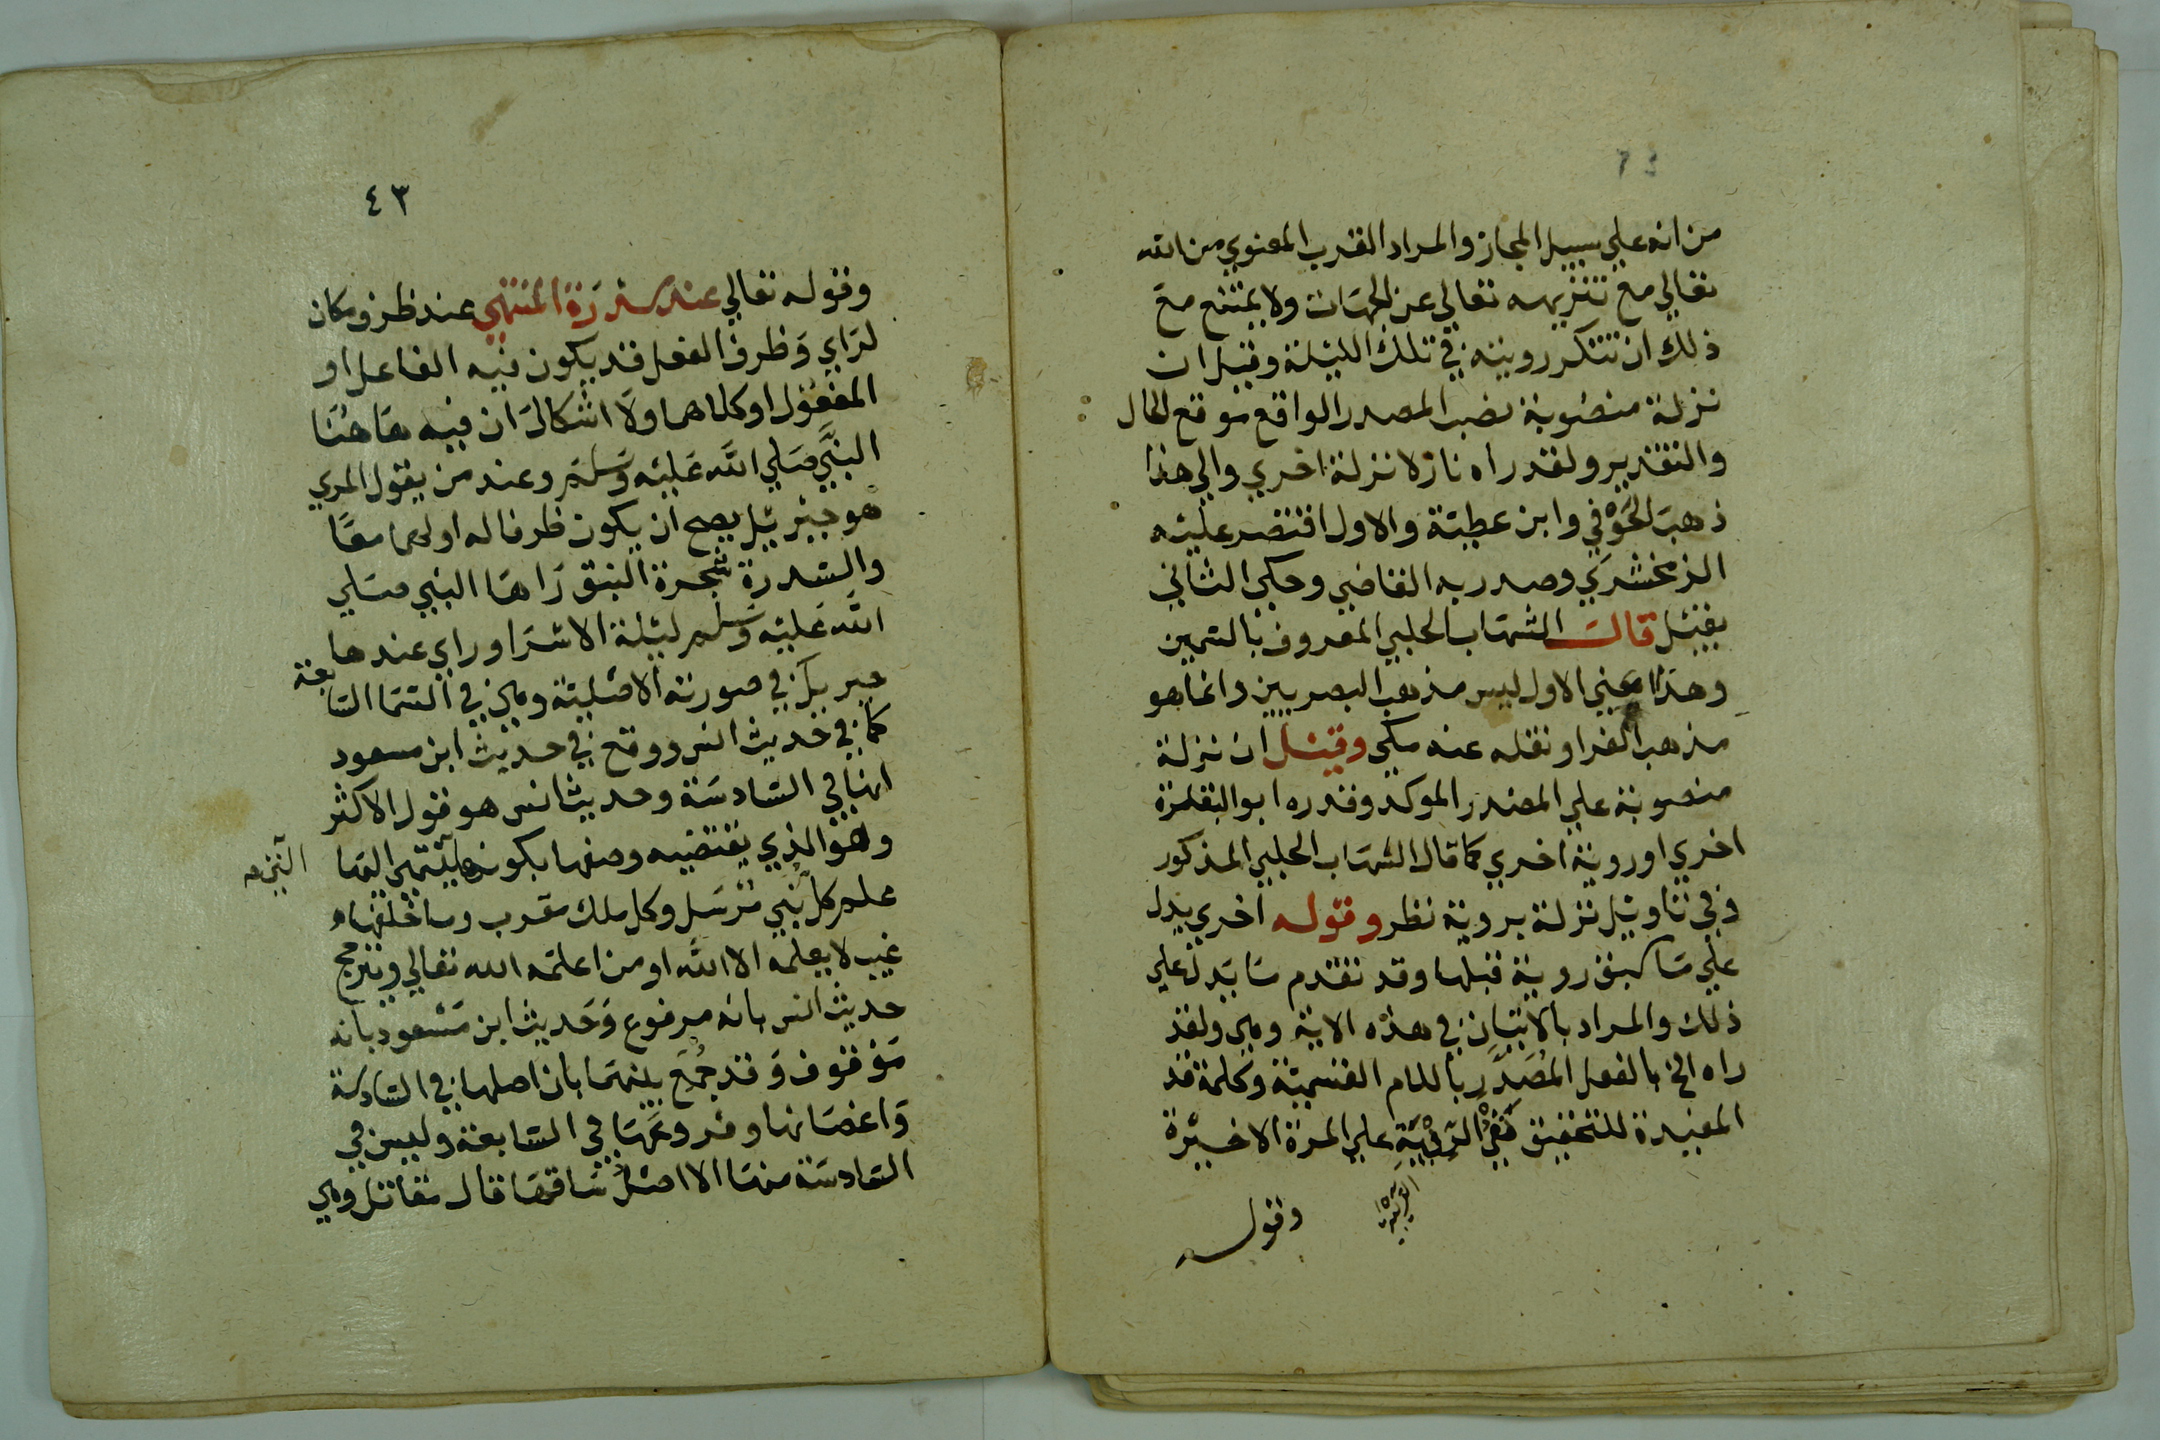 من انه علي سبيل المجاز والمراد القرب المعنوي من الله
تعالي مع تنزيهه تعالي عن الجهات ولا يمتنع مع
ذلك ان تتكرر رويته في تلك الليلة وقيل ان
نزلة منصوبة نصب المصدر الواقع موقع الحال
والتقدير ولقد راه نازلا نزلة اخري والي هذا
ذهب الحوفي وابن عطية والاول اقتصر عليه
الزمخشري وصدر به القاضي وحكي الثاني
بقيل قالت الشهاب الحلبي المعروف بالسمين
وهذا يعني الاول ليس مذهب البصريين وانما هو
مذهب الفرا ونقله عنه مكي وقيل ان نزلة
منصوبة علي المصدر الموكد وقدره ابو البقا مرة
اخري او روية اخري كما قال الشهاب الحلبي المذكور
وفي تاويل نزلة بروية نظر وقوله اخري يدل
علي سبق روية قبلها وقد تقدم ما يدل علي
ذلك والمراد بالاتيان في هذه الاية وهي ولقد
راه الخ بالفعل المصدر باللام القسمية وكلمة قد
المفيدة للتحقيق نفي الريبة علي المرة الاخيرة
وقوله
٤٣
وقوله تعالي عند سدرة المنتهي عند ظرف مكان
لراي وظرف الفعل قد يكون فيه الفاعل او
المفعول او كلاهما ولا اشكال ان فيه هاهنا
النبي صلي الله عليه وسلم وعند من يقول المري
هو جبريل يصح ان يكون ظرفا له او لهما معا
والسدرة شجرة النبق راها النبي صلي
الله عليه وسلم ليلة الاسرا وراي عندها
جبريل في صورته الاصلية وهي في السما السابعة
كما في حديث انس ووقع في حديث ابن مسعود
انها في السادسة وحديث انس هو قول الاكثر
وهو الذي يقتضيه وصفها بكونها ينتهي اليها
علم كل نبي مرسل وكل ملك مقرب وما خلفها
غيب لا يعلمه الا الله او من اعلمه الله تعالي ويترجح
حديث انس بانه مرفوع وحديث ابن مسعود بانه
موقوف وقد جمع بينهما بان اصلها في السادسة
واغصانها وفروعها في السابعة وليس في
السادسة منها الا اصل ساقها قال مقاتل وهي